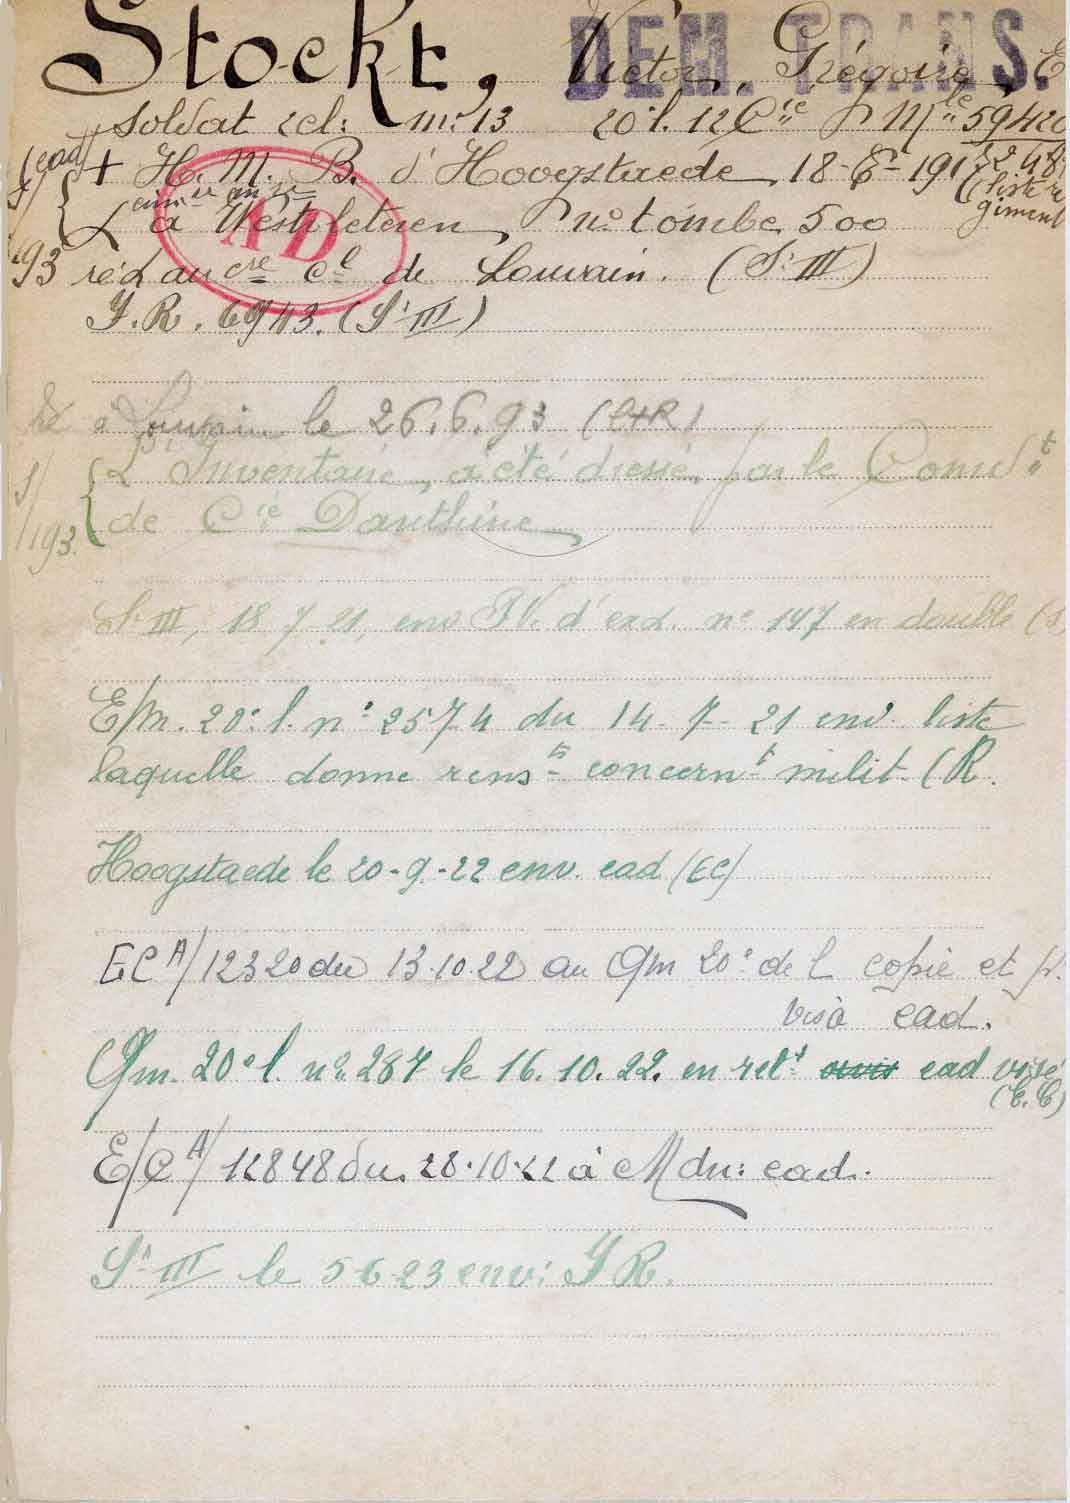 Stockt, Victor, Grégoire, E
DEM. TRANS.
soldat rcl: m: 13 20° l. 12 Cie Mle 59420
(cad) + H. M. B. d'Hoogstaede, 18-
liste régiment
à Westvleteren, n° tombe, 500
AD
'93 de Louvain. (S' III)
J. R. 6943. (S' III)
à Louvain le 26.6.93
L'Inventaire, a été dressé par le Comdt
de Cie Danthine
/193.
S' III, 18 7 21, env P.V. d'exh. n° 147 en double
E/m. 20° l. n° 2574 du 14-7-21 env. liste
laquelle donne rensts concernt milit. (R.
Hoogstaede le 20-9-22 env. ead (EC)
EC A/ 12320 du 13.10.22 au Qm 20° de l copie et p.
visa ead.
Qm. 20° l. n° 287 le 16.10.22. en relt ead visé
(E.C)
E/C A/ 12848 du 28.10.22 à Mdn: ead.
S' III le 5 6 23 env: J R.